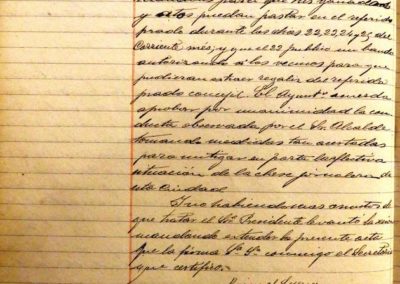 para que sus ganados
y otros puedan pastar en el referido
prado durante los dias 22, 23, 24 y 25 del
corriente mes; y que el 23 publicó un bando
autorizando á los vecinos para que
pudieran extraer regaliz del referido
prado concejil. El Ayuntº acuerda
aprobar por unanimidad la con
ducta observada por el Sr. Alcalde
tomando medidas tan acertadas
para mitigar en parte la aflictiva
situación de la clase jornalera de
esta Ciudad
Y no habiendo mas asuntos de
que tratar el Sr. Presidente levantó la sesión
mandando extender la presente acta
que la firma Sª Sª conmigo el Secretario
que certifico.